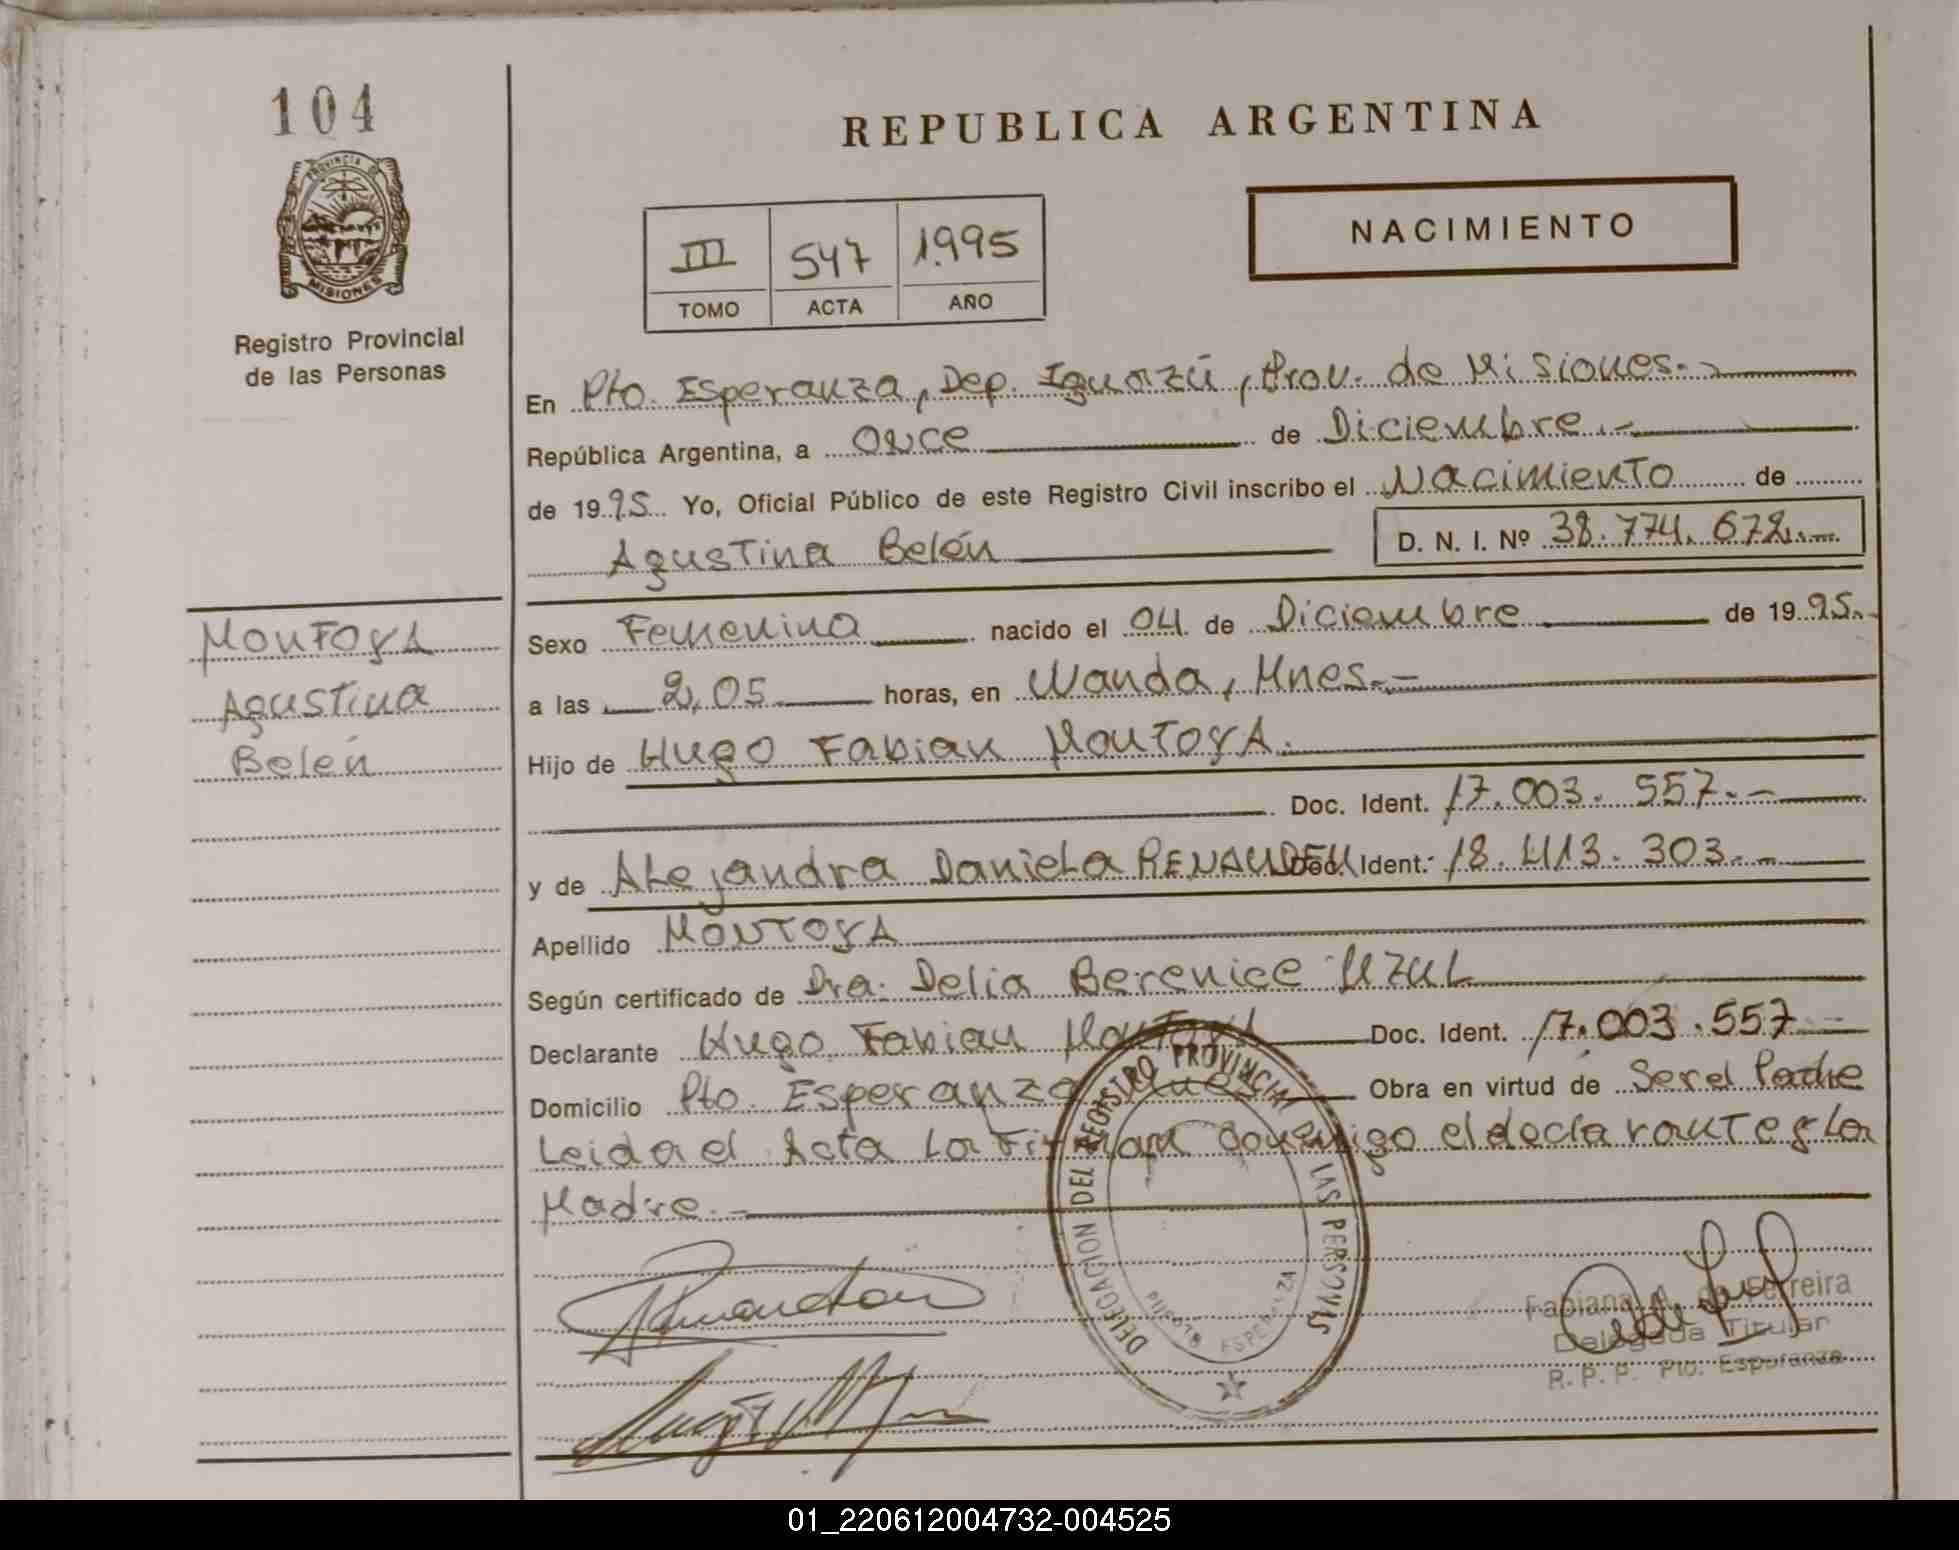 104
PROVINCIA DE
MISIONES
Registro Provincial
de las Personas
REPUBLICA ARGENTINA
III 547 1995
TOMO ACTA AÑO
NACIMIENTO
En Pto. Esperanza, Dep. Iguazú, Prov. de Misiones.-
República Argentina, a Once de Diciembre.-
de 1995. Yo, Oficial Público de este Registro Civil inscribo el Nacimiento de
Agustina Belén D. N. I. Nº 38.774.672.-
MONTOYA
Agustina
Belén
Sexo Femenino nacido el 04 de Diciembre de 1995.-
a las 2,05 horas, en Wanda, Mnes.-
Hijo de Hugo Fabian MONTOYA.
Doc. Ident. 17.003.557.-
y de Alejandra Daniela Doc. Ident. 18.413.303.-
Apellido MONTOYA
Según certificado de Dra. Delia Berenice UZUL
Declarante Hugo Fabian Montoya Doc. Ident. 17.003.557.-
Domicilio Pto. Esperanza Mnes Obra en virtud de Ser el Padre
Leida el Acta La Firman Conmigo el declarante y La
Madre.-
DELEGACION DEL REGISTRO PROVINCIAL DE LAS PERSONAS
PUERTO ESPERANZA
Fabiana A. de Ferreira
Delegada Titular
R. P. P. Pto. Esperanza
01_220612004732-004525